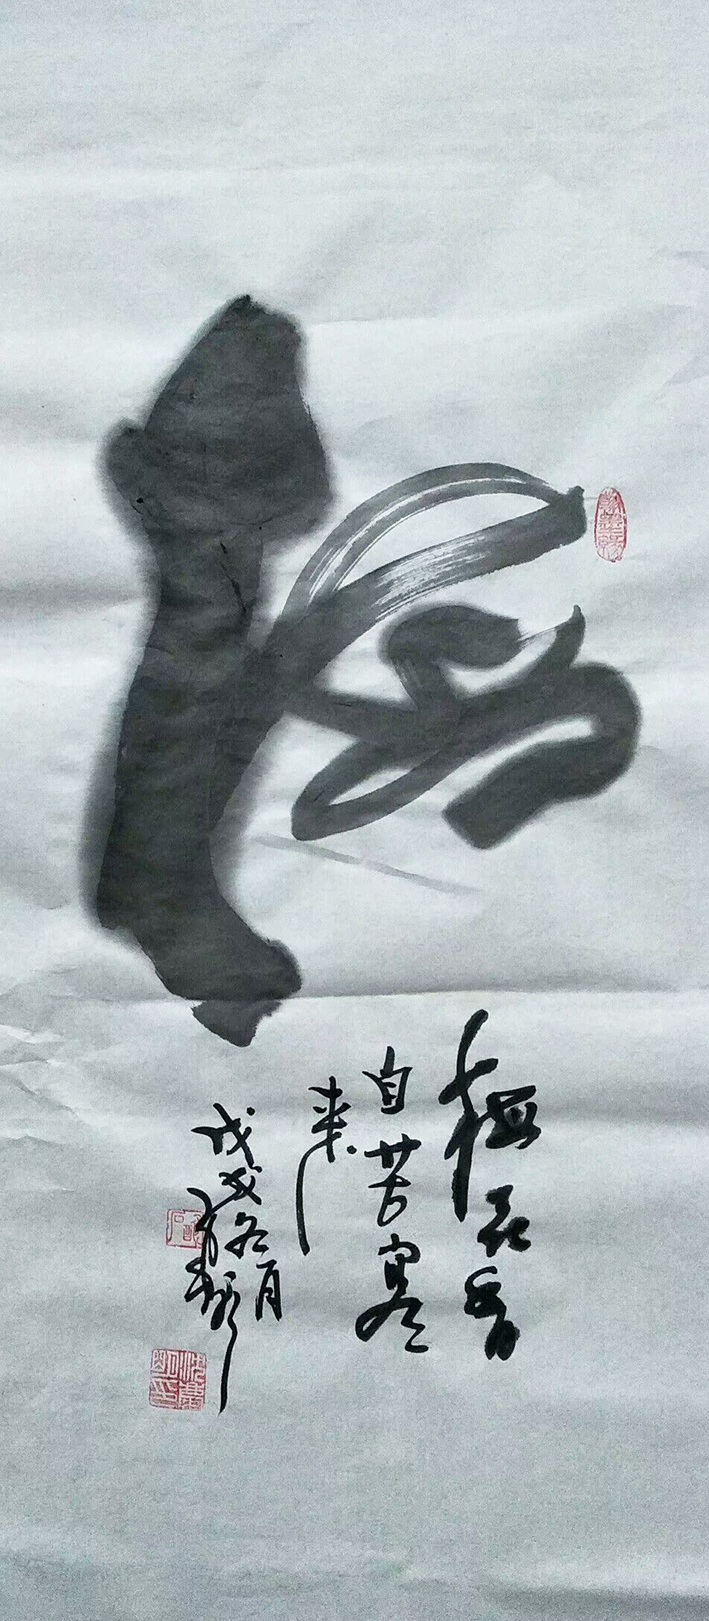 梅
梅花香
自苦寒
来
戊戌冬月